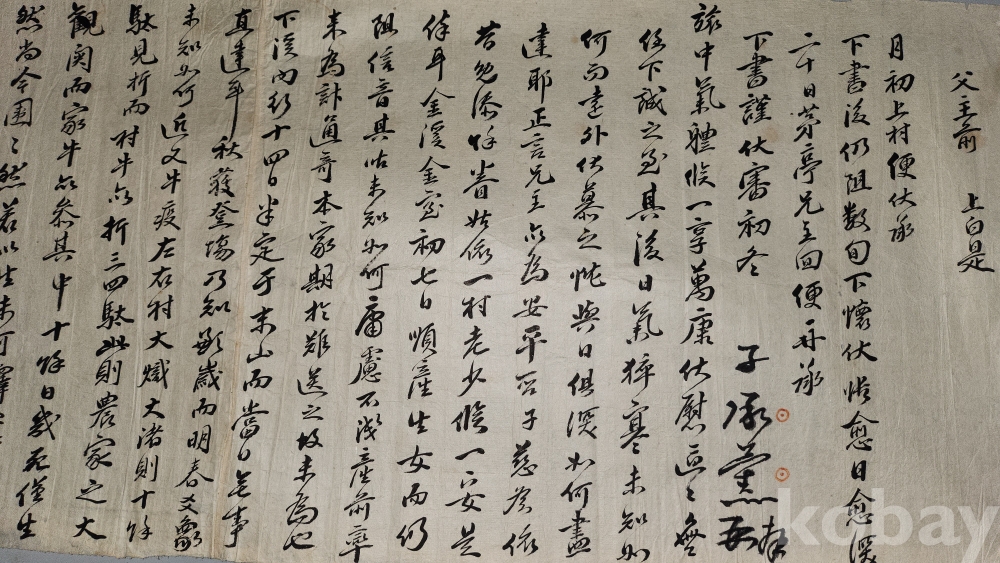 父主前 上白是
月初上村便伏承
下書後仍阻数旬下懷伏悵愈日愈深
二十日芳亭兄主回便再承
下書謹伏審初冬
旅中氣體候一享萬康伏慰區區無
任下誠之至其後日氣猝寒未知如
何而遠外伏慕之忱與日俱深如何盡
達耶正言兄主亦為安平否子慈候依
昔勉添餘眷姑依一村老少候一安是
伴耳金溪金室初七日順産生女而仍
阻信音其姑未知如何庸慮不淺産前率
来為計通奇本家期於難送之故未為也
下溪內行十四日半定于末山而當日無事
真達耳秋穫登場乃知歉歲而明春又象
未知如何近又牛疫左右村大熾大渚則十餘
駄見折而村牛亦折三四駄此則農家之大
觀関而家牛亦参其中十餘日幾死僅生
然尚今圉圉然若以生未可
子承薰
kobay